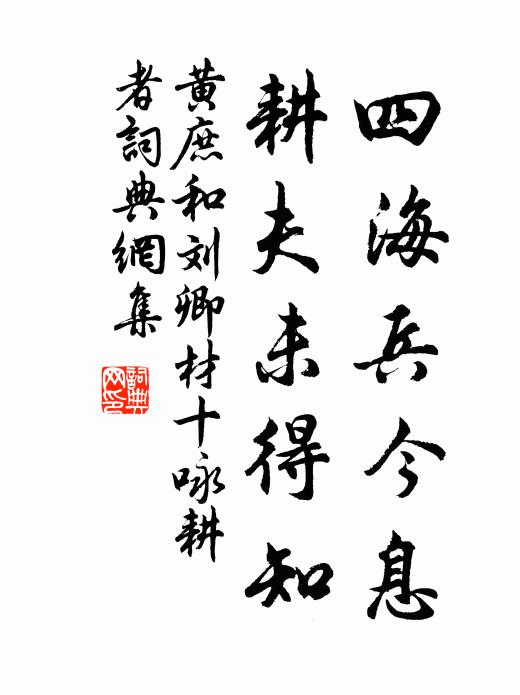 四海兵今息
耕夫未得知
黄庶和刘卿材十咏耕
者詞典網集
詞典网印